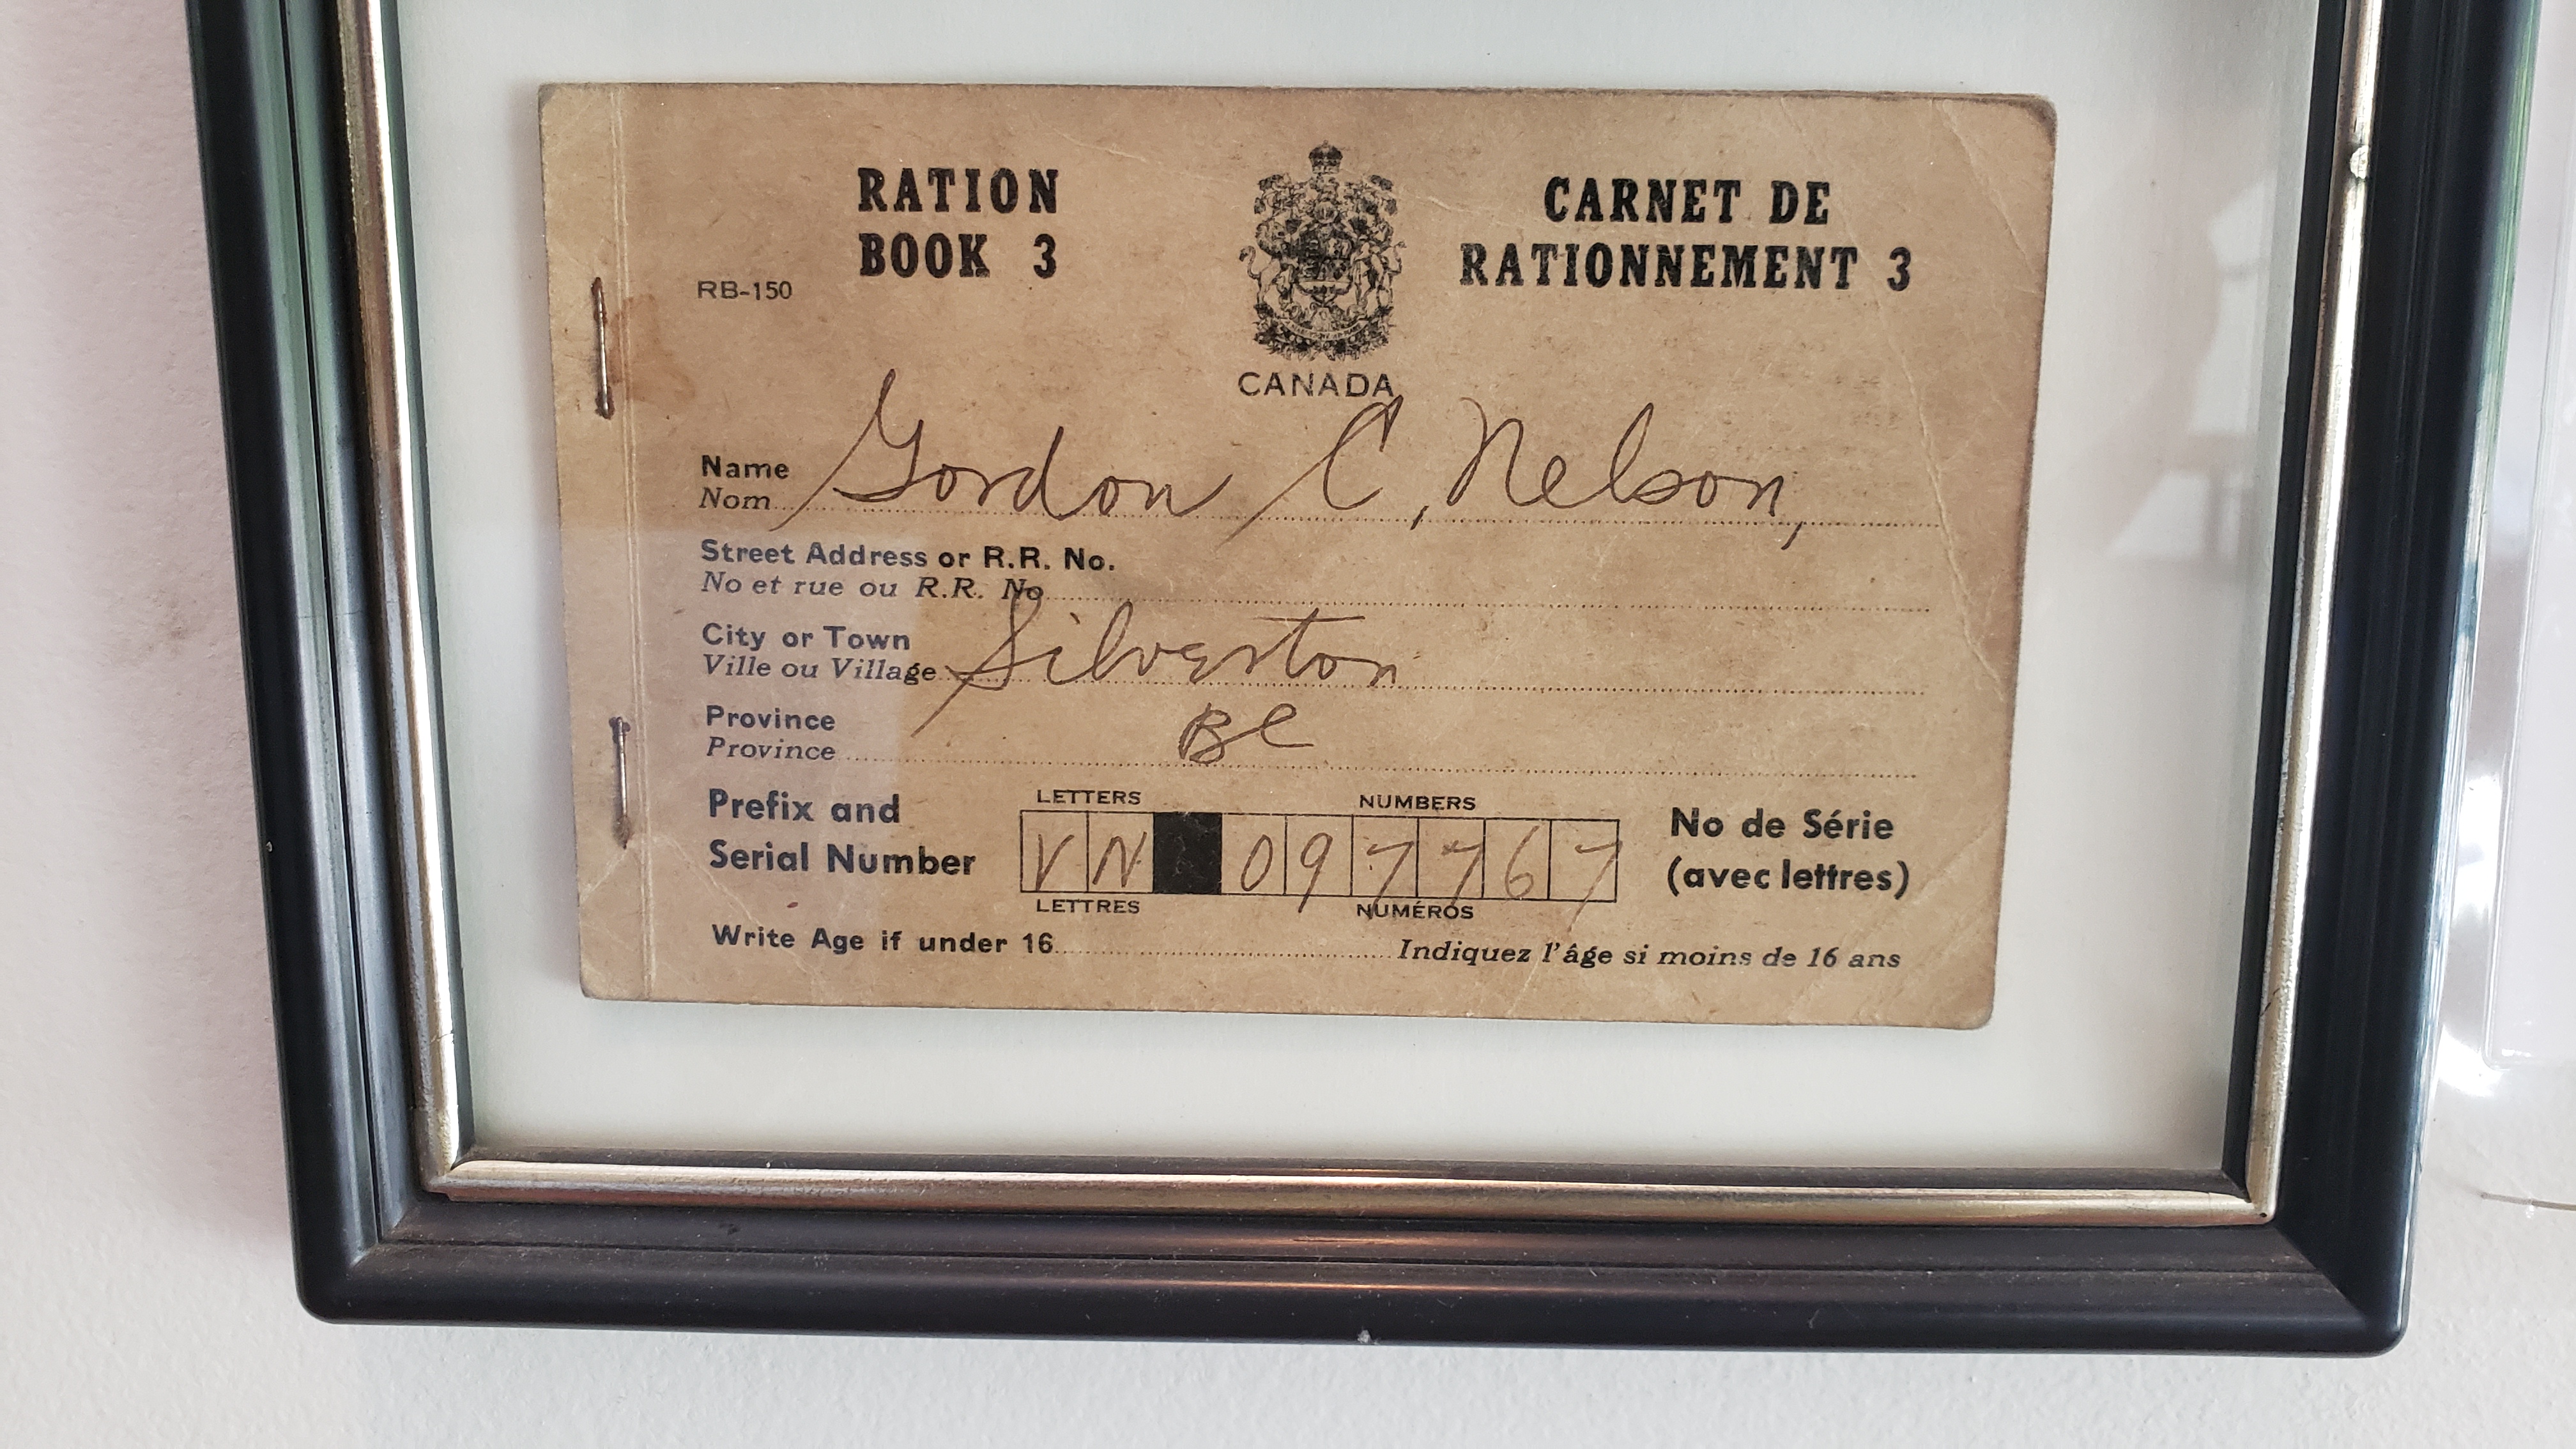 RATION
BOOK 3
RB-150
CANADA
CARNET DE
RATIONNEMENT 3
Name Gordon C. Nelson,
Nom
Street Address or R.R. No.
No et rue ou R.R. No
City or Town
Ville ou Village Silverton
Province BC
Province
LETTERS NUMBERS
Prefix and
Serial Number
VN 097767
No de Série
(avec lettres)
LETTRES NUMÉROS
Write Age if under 16 Indiquez l'âge si moins de 16 ans